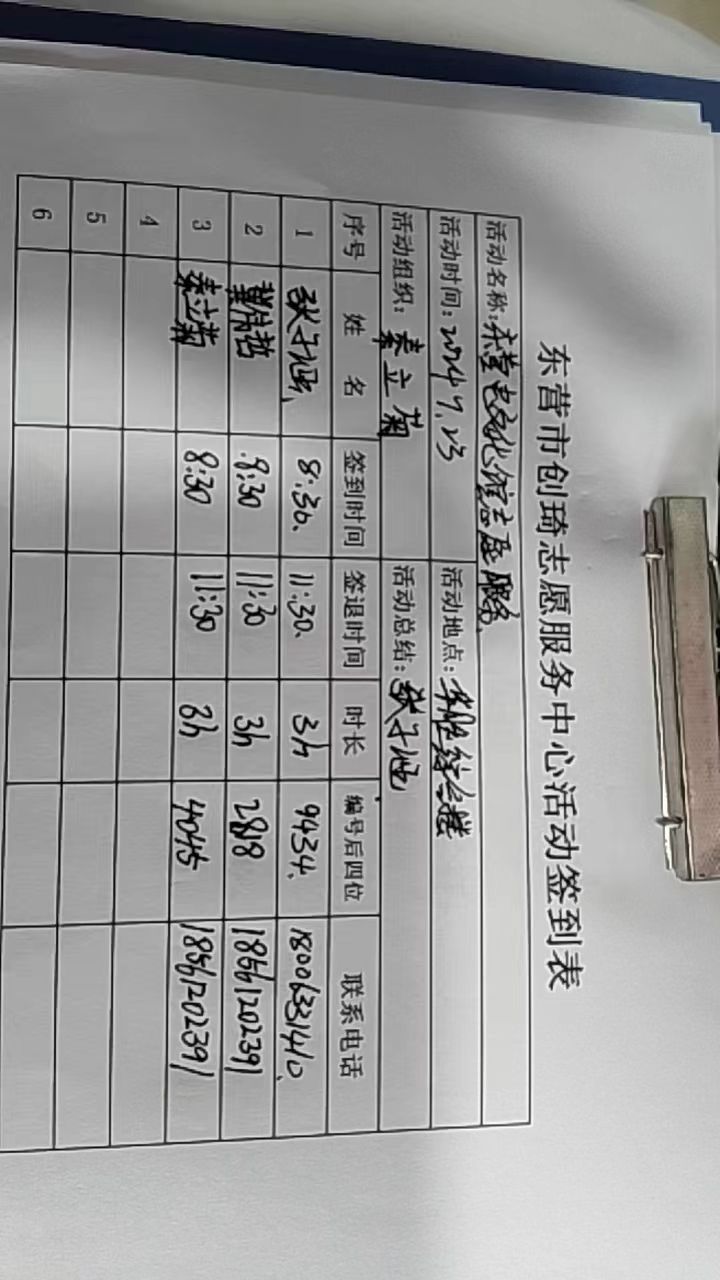 东营市创琦志愿服务中心活动签到表
活动名称：东营 文化馆志愿服务
活动时间：2024 7.23 活动地点：综合楼
活动组织：秦立菊 活动总结：张子旭
序号 姓名 签到时间 签退时间 时长 编号后四位 联系电话
1 张子旭 8:30 11:30 3h 9434 18006331410
2 哲 8:30 11:30 3h 2818 18661202391
3 秦立菊 8:30 11:30 3h 4045 18561202391
4
5
6